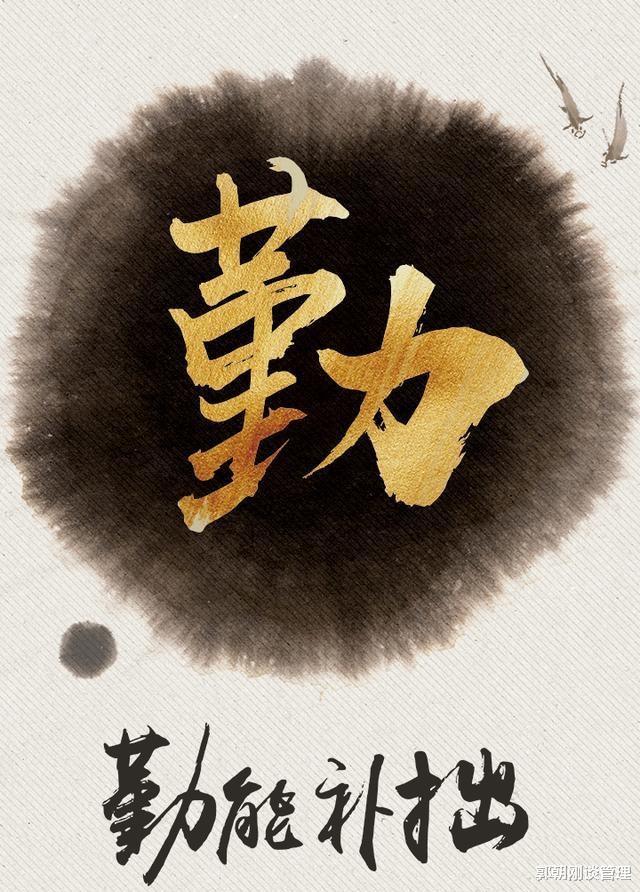 勤
勤能补拙
郭朝刚谈管理